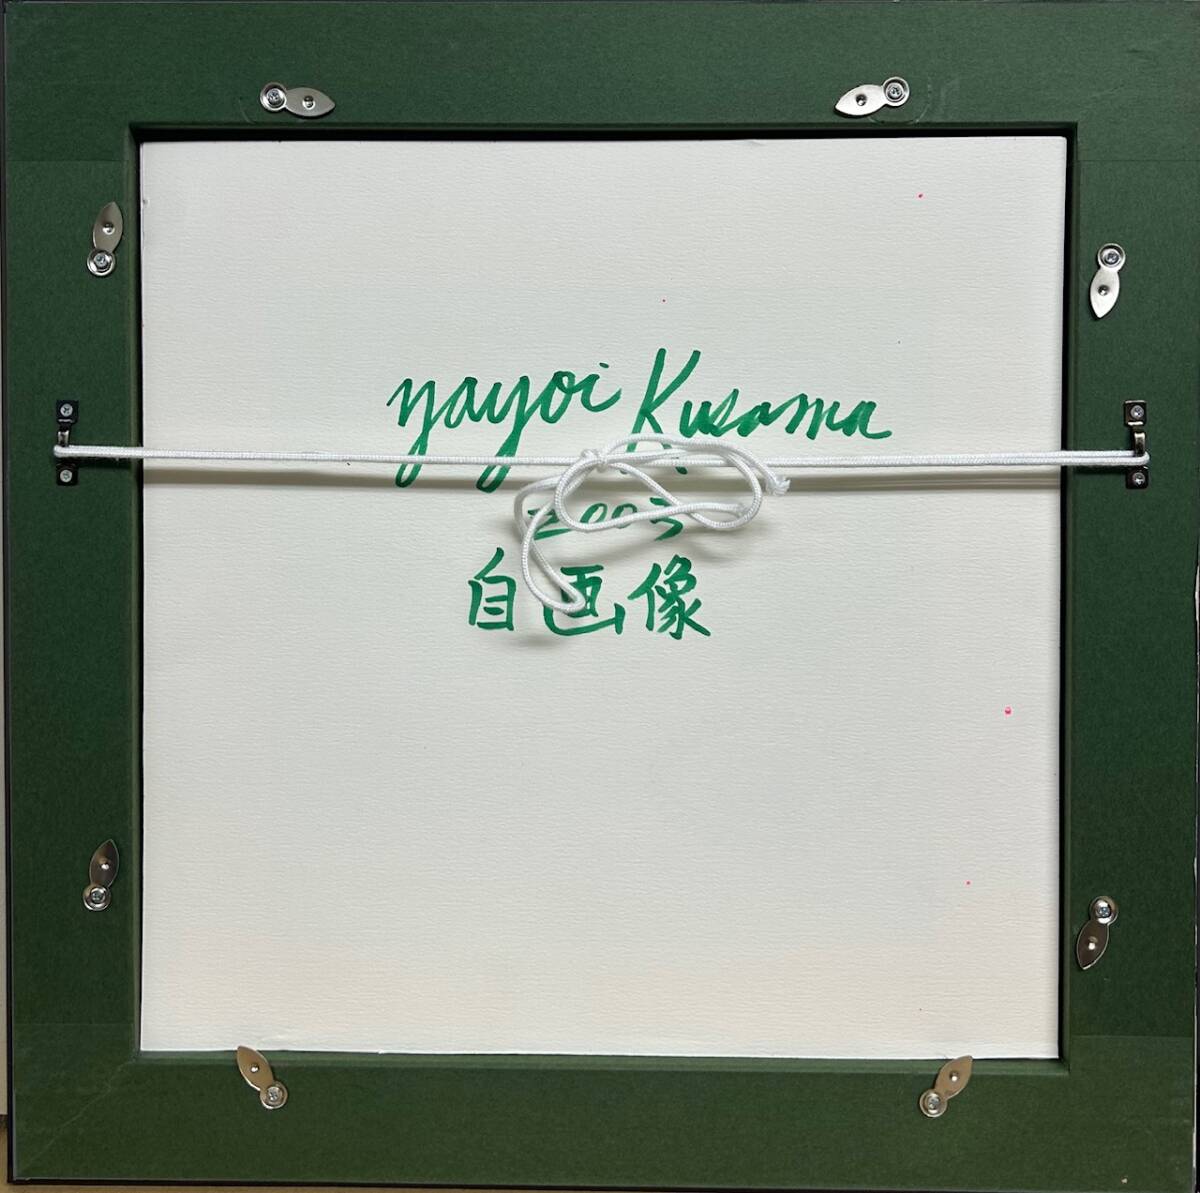 yayoi Kusama
2003
自画像